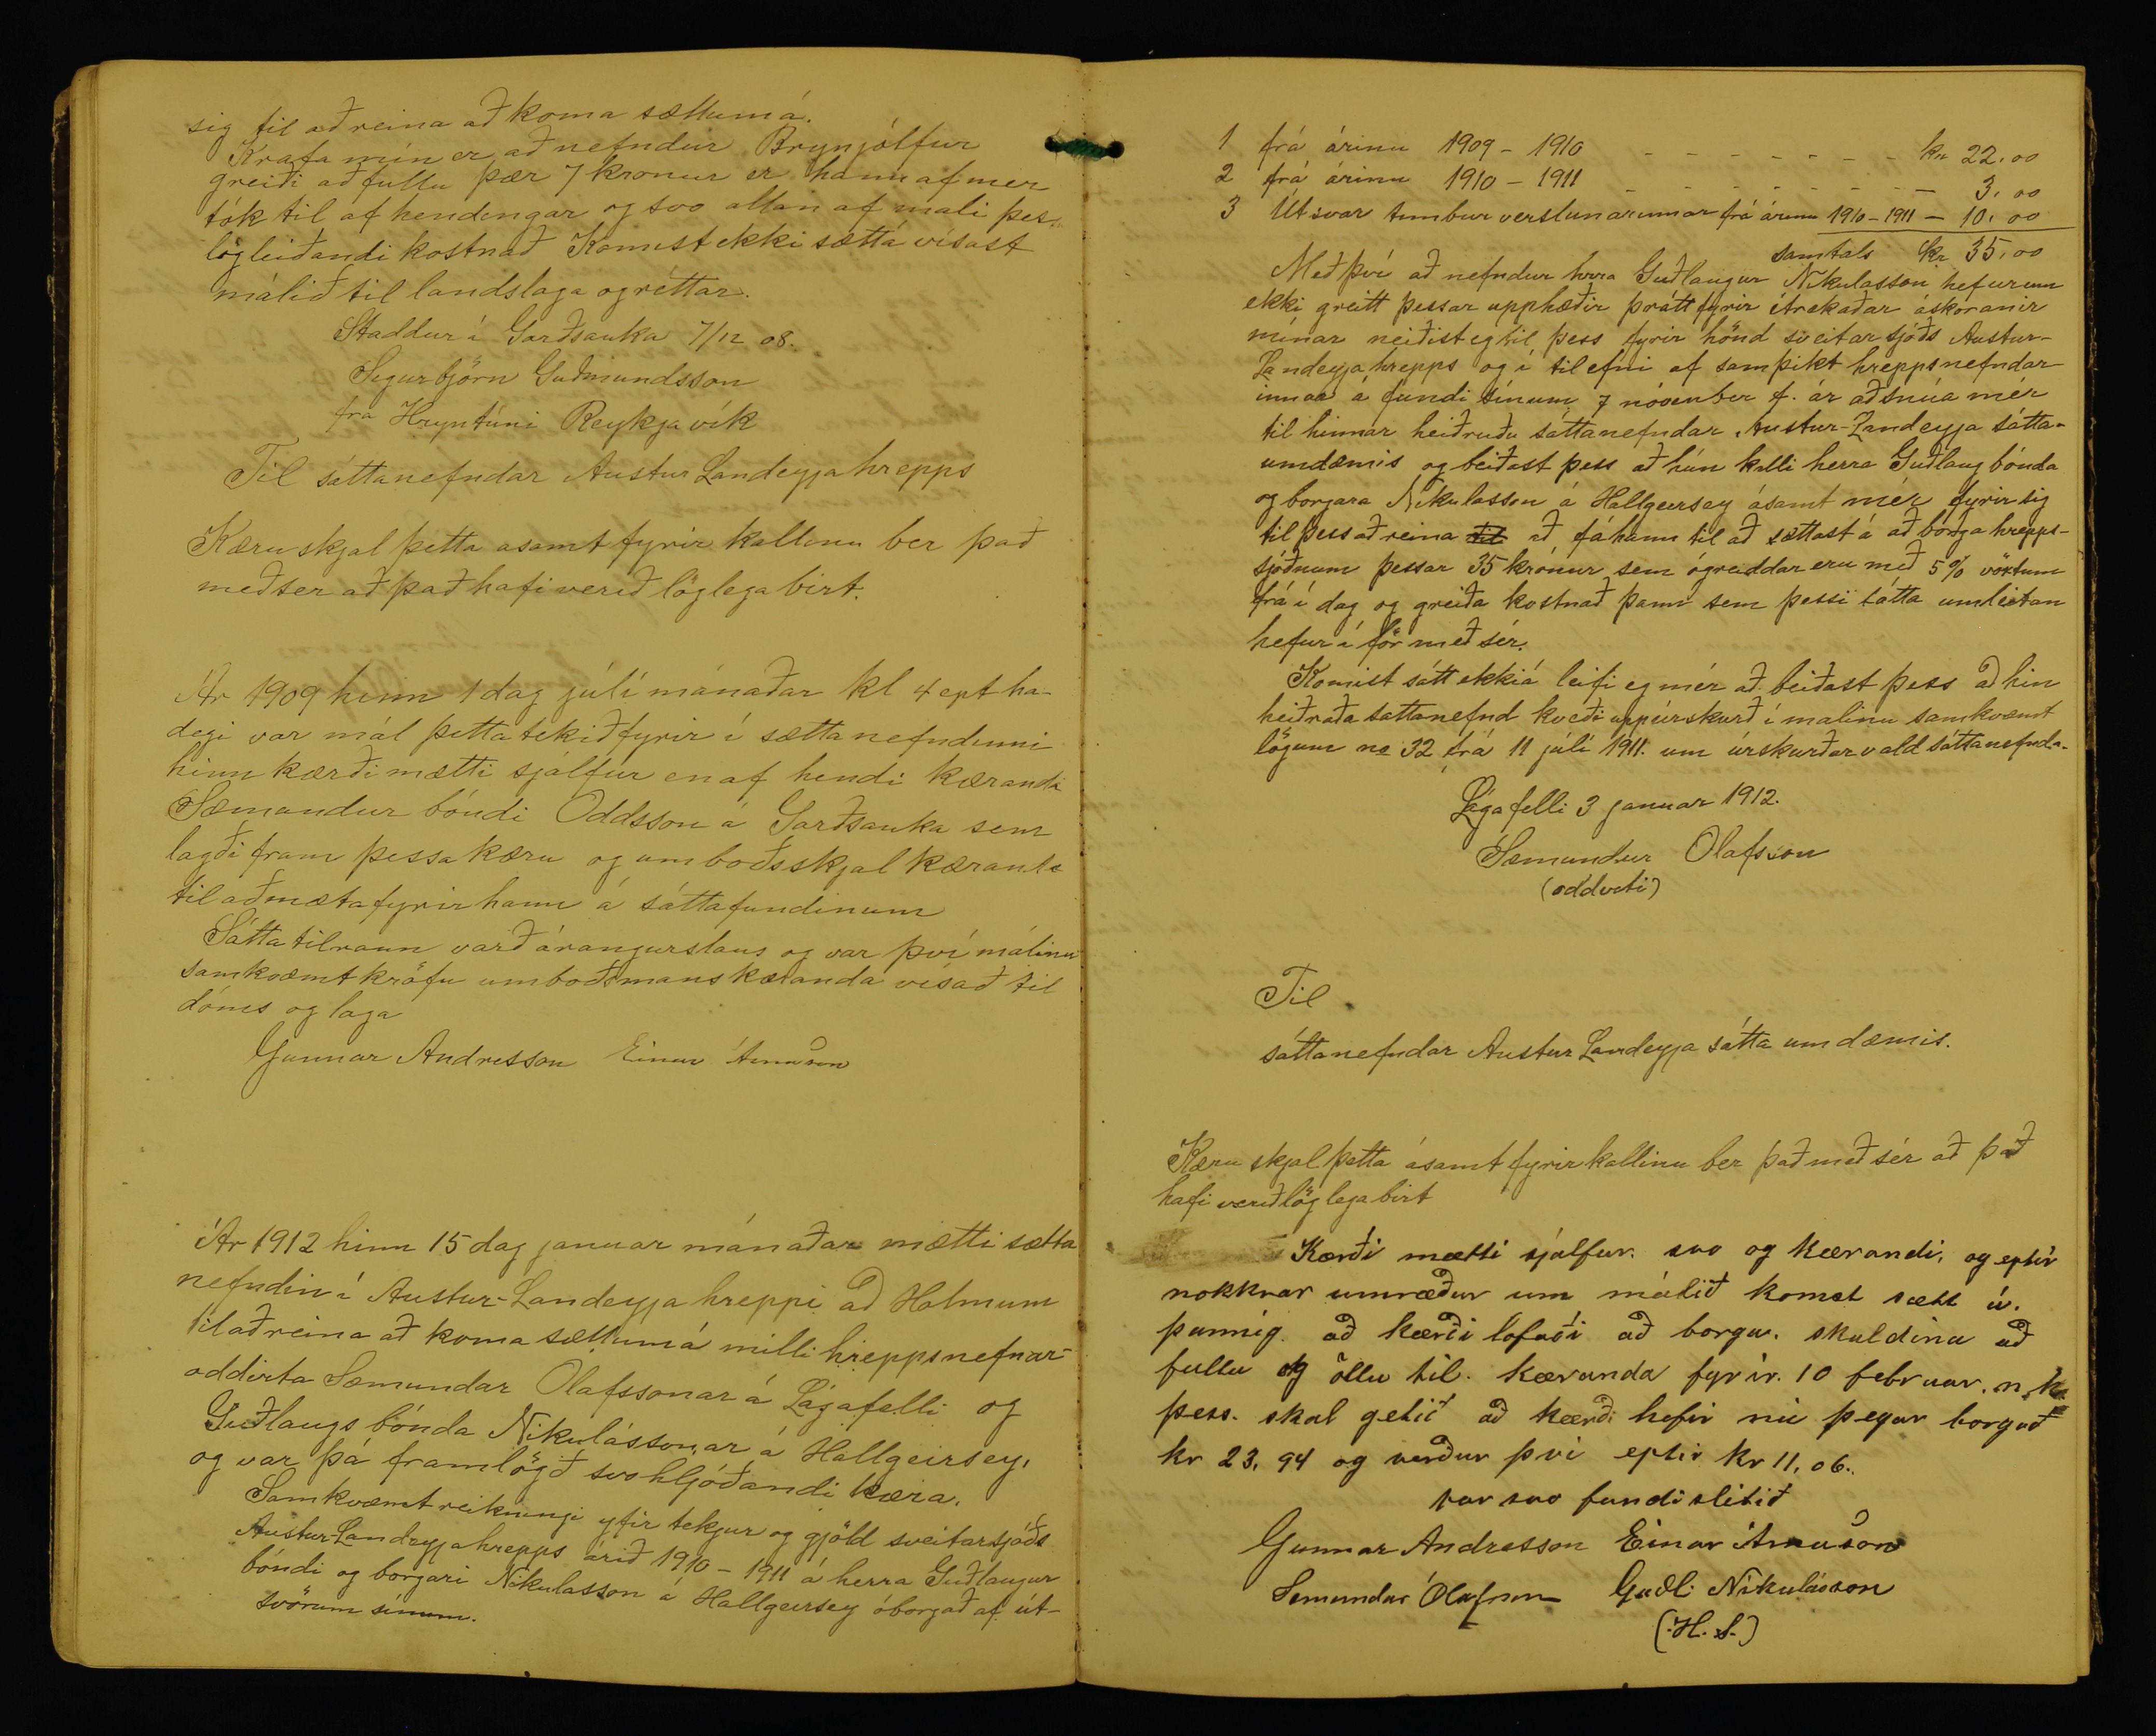 sig til að reina að koma sættum á.
Krafa mín er að nefndur Brynjólfur
greiði að fullu þær 7 kronur er hann af mer
tók til af hendingar og svo allan af mali þes
lögleiðandi kostnað Komist ekki sætta vísast
málið til landslaga og réttar.
Staddur í Garðsauka 7/12 08.
Sigurbjörn Guðmundsson
fra Hryntúni Reykjavík
Til sáttanefndar Austur Landeyja hrepps
Kæru skjal þetta asamt fyrir kallinu ber það
með ser að það hafi verið löglega birt.
Ár 1909 hinn 1 dag júlí mánaðar kl 4 ept ha-
degi var mál þetta tekið fyrir í sættanefndinni
hinn kærði mætti sjálfur en af hendi kæranda
Sæmundur bóndi Oddsson á Garðsauka sem
lagði fram þessa kæru og umboðsskjal kæranda
til að mæta fyrir hann á sáttafundinum
Sátta tilraun varð árangurslaus og var því málinu
samkvæmt kröfu umboðsmans kæranda vísað til
dóms og laga
Gunnar Andresson Einar Árnason
Ár 1912 hinn 15 dag januar mánaðar mætti sætta
nefndin í Austur-Landeyja hreppi að Holmum
til að reina að koma sættum á milli hreppsnefnar-
oddvita Sæmundar Olafssonar á Lágafelli og
Guðlaugs bónda Nikulássonar á Hallgeirsey,
og var þá framlögð svo hljóðandi kæra.
Samkvæmt reikningi yfir tekjur og gjöld sveitarsjóðs
Austur-Landeyjahrepps árið 1910 - 1911 á herra Guðlaugur
bóndi og borgari Nikulasson á Hallgeirsey óborgað af út-
svörum sínum.
1 frá árinu 1909 - 1910 - - - - - - - - kr 22.00
2 frá árinu 1910 - 1911 - - - - - - - - - 3.00
3 Útsvar timbur verslunarinnar frá árinu 1910-1911 - 10.00
samtals kr 35.00
Með því að nefndur herra Guðlaugur Nikulasson hefur um
ekki greitt þessar upphæðir þrátt fyrir ítrekaðar áskoranir
mínar neiðist eg til þess fyrir hönd sveitarsjóðs Austur-
Landeyja hrepps og í tilefni af samþikt hreppsnefndar
innar á fundi sínum 7 nóvenber f. ár að snúa mér
til hinnar heiðruðu sáttanefndar Austur-Landeyja sátta-
umdæmis og beiðast þess að hún kalli herra Guðlaug bónda
og borgara Nikulasson á Hallgeirsey ásamt mér fyrir sig
til þess að reina til að fá hann til að sættast á að borga hrepps-
sjóðnum þessar 35 krónur sem ógreiddar eru með 5% vöxtum
frá í dag og greiða kostnað þann sem þessi sátta umleitan
hefur í för með sér.
Komist sátt ekki á leifi eg mér að beiðast þess að hin
heiðraða sattanefnd kveði upp úrskurð í malinu samkvæmt
lögum no 32 frá 11 júlí 1911. um úrskurðarvald sáttanefnda.
Lágafelli 3 januar 1912.
Sæmundur Olafsson
(oddviti)
Til
sáttanefndar Austur Landeyja sátta umdæmis.
Kæru skjal þetta ásamt fyrirkallinu ber það með sér að það
hafi verið löglega birt
Kærði mætti sjálfur. svo og kærandi, og eptir
nokkrar umræður um málið komst sætt á.
þannig að kærði lofaði að borga. skuldina að
fullu og öllu til. kæranda fyrir. 10 februar. n.k.
þess. skal getið að kærði hefir nú þegar borgað
kr 23.94 og verður því eptir kr 11,06.
var svo fundi slitið
Gunnar Andresson Einar Árnason
Sæmundur Ólafsson Guðl. Nikulásson
(H. S.)